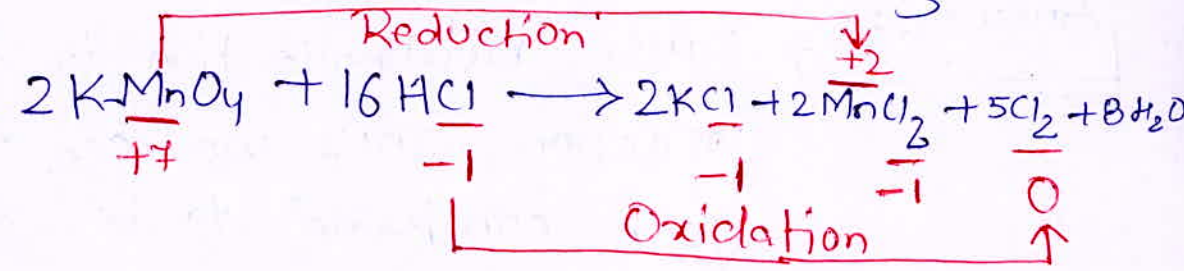 Reduction
+2
2 KMnO4 + 16 HCl → 2KCl + 2 MnCl2 + 5Cl2 + 8H2O
+7 -1 -1 -1 0
Oxidation